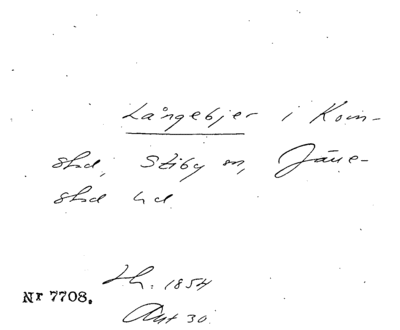 Långebjer i Kom-
stad, Stiby sn, Järre-
stad hd
Nr 7708.
Th. 1854
Ant 30